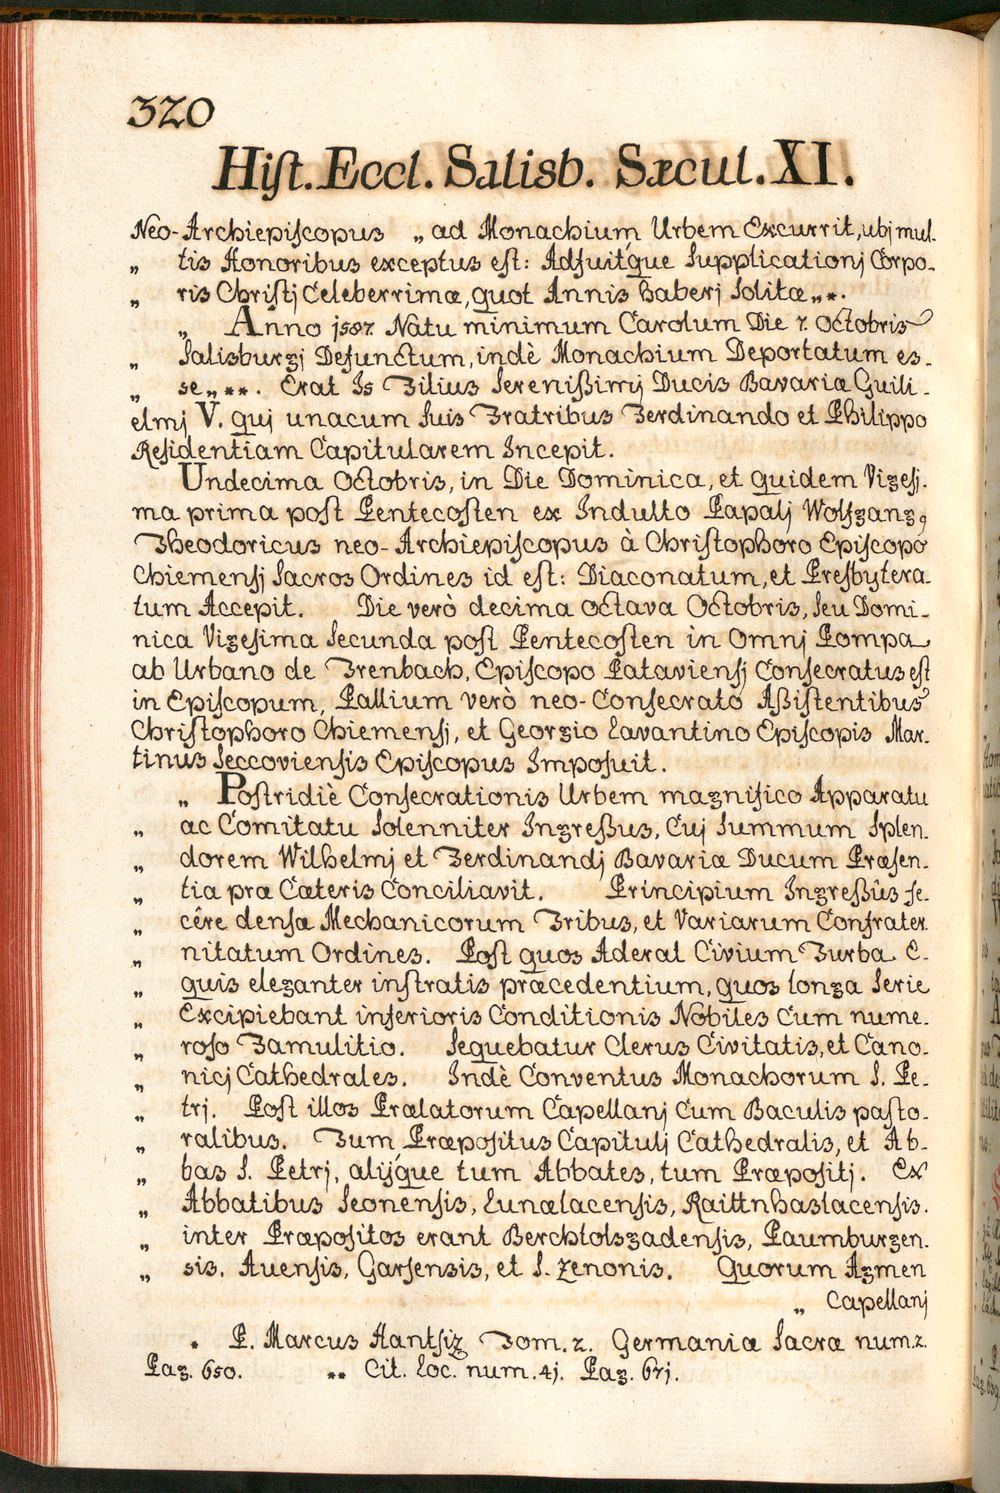 320
Hist. Eccl. Salisb. Sæcul. XI.
Neo-Archiepiscopus „ ad Monachium Urbem Excurrit, ubj mul-
„ tis Honoribus exceptus est: Adfuitque Supplicationj Corpo-
„ ris Christj Celeberrimæ, quot Annis haberj solitæ „ *.
„ Anno 1587. Natu minimum Carolum Die 7. Octobris
„ Salisburgj Defunctum, indè Monachium Deportatum es-
„ se „ **. Erat Is Filius Serenißimj Ducis Bavariæ Guili-
elmj V. quj unacum suis Fratribus Ferdinando et Philippo
Residentiam Capitularem Incepit.
Undecima Octobris, in Die Dominica, et quidem Vigesi-
ma prima post Pentecosten ex Indulto Papalj Wolfgang,
Theodoricus neo-Archiepiscopus à Christophoro Episcopo
Chiemensj Sacros Ordines id est: Diaconatum, et Presbytera-
tum Accepit. Die verò decima octava Octobris, seu Domi-
nica Vigesima Secunda post Pentecosten in Omnj Pompa
ab Urbano de Trenbach, Episcopo Pataviensj Consecratus est
in Episcopum, Pallium verò neo-Consecrato Aßistentibus
Christophoro Chiemensj, et Georgio Lavantino Episcopis Mar-
tinus Seccoviensis Episcopus Imposuit.
„ Postridiè Consecrationis Urbem magnifico Apparatu
„ ac Comitatu Solenniter Ingreßus, Cuj Summum Splen-
„ dorem Wilhelmj et Ferdinandj Bavariæ Ducum Præsen-
„ tia præ Cæteris Conciliavit. Principium Ingreßûs fe-
„ cêre densæ Mechanicorum Tribus, et Variarum Confrater
„ nitatum Ordines. Post quos Aderat Civium Turba E-
„ quis eleganter instratis præcedentium, quos longa Serie
„ Excipiebant inferioris Conditionis Nobiles Cum nume-
„ roso Famulitio. Sequebatur Clerus Civitatis, et Cano-
„ nicj Cathedrales. Indè Conventus Monachorum S. Pe-
„ trj. Post illos Prælatorum Capellanj Cum Baculis pasto-
„ ralibus. Tum Præpositus Capitulj Cathedralis, et Ab-
„ bas S. Petrj, alijque tum Abbates, tum Præpositj. Ex
„ Abbatibus Seonensis, Lunælacensis, Raittnhaslacensis.
„ inter Præpositos erant Berchtolsgadensis, Paumburgen-
„ sis, Auensis, Garsensis, et S. Zenonis. Quorum Agmen
„ Capellanj
* P. Marcus Hantsiz Tom. 2. Germaniæ Sacræ num. 2.
Pag. 650. ** Cit. Loc. num. 4j. Pag. 67j.